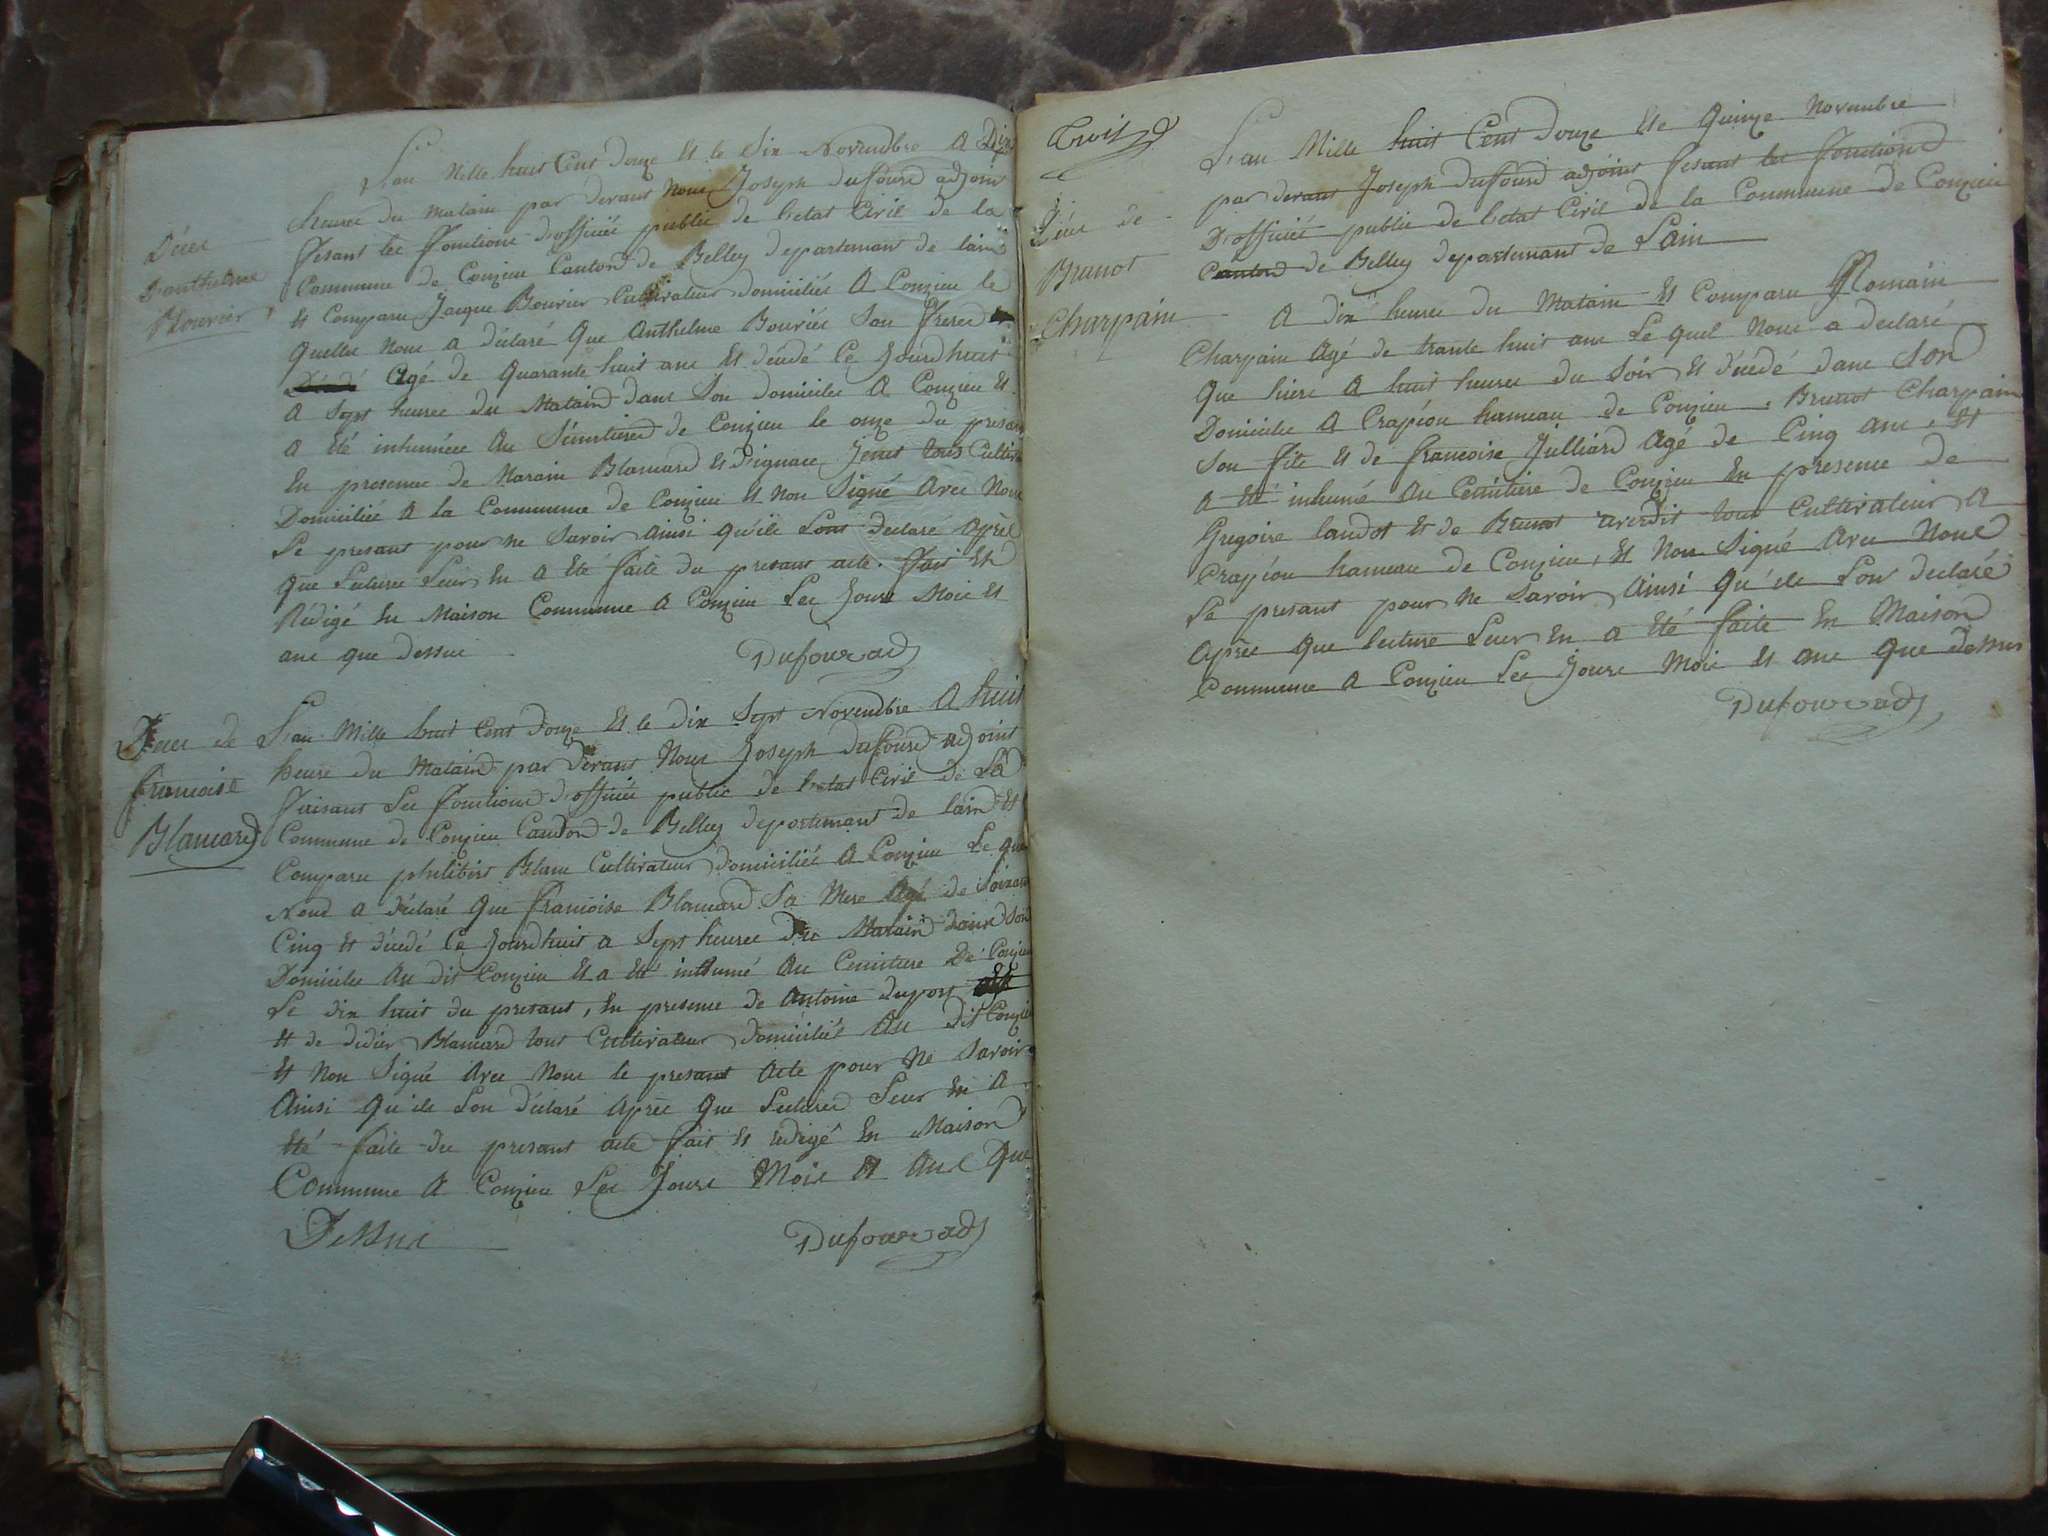 Décès
D'anthelme
Bouvier
L'an Mille huit Cent Douze Et le Six Novembre A Dix
heures du Matain par devant Nous Joseph dufourd adjoin
fesant les fonctions d'officiés public de l'etat Civil de la
Commune de Conzieu Canton de Belley departemant de lain
Et Comparu Jacque Bouvier Cultivateur domiciliés A Conzieu le
quelles Nous a déclaré Que Anthelme Bouviés Son frere
Agé de Quarante huit ans Et décédé Ce Jourdhuit
A Sept heures du Matain dans Son domiciles A Conzieu Et
A été inhumée Au Sémetiere de Conzieu le onze du presan
En presence de Marain Blancard Et d'ignace Jenet tous Cultiv
Domiciliés A la Commune de Conzieu Et Non Signé Avec Nous
Le presant pour Ne Savoir Ainsi Qu'ils Sont declaré Après
Que Lecture Leur En A Eté faite du presant acte. fait Et
Rédigé En Maison Commune A Conzieu Les Jours Mois Et
ans que dessus
Dufour adj
Décès de
francoise
Blancard
L'an Mille huit Cent Douze Et le dix Sept Novembre A huit
heure du Matain par devant Nous Joseph dufourd adjoint
faisant Les fonctions d'officiés public de l'etat Civil de La
Commune de Conzieu Canton de Belley departemant de lain Et
Comparu philibert Blanc Cultivateur domiciliés A Conzieu Le que
Nous A déclaré Que francoise Blancard Sa Mere Agé de Soixan
Cinq Et décédé Ce Jourdhuit a Sept heures du Matain dans Son
Domicile Au dit Conzieu Et a été inhumé Au Cemitiere De Conzieu
Le dix huit du presant, En presence de Antoine duport
Et de didier Blancard tous Cultivateur domiciliés Au dit Conzieu
Et Non Signé Avec Nous le presant Acte pour Ne Savoir
Ainsi Qu'ils Son déclaré Après Que Lecture Leur En A
Eté faite du presant acte fait Et redigé En Maison
Commune A Conzieu Les Jours Mois Et Ans Que
Dessus
Dufour adj
Trois
Décès de
Brunot
Charpain
L'an Mille huit Cent Douze Et le Quinze Novembre
par devant Joseph Dufourd adjoint fesant les fonctions
D'officiés public de l'etat Civil de la Commune de Conzieu
Canton de Belley departemant de Lain
A dix heures du Matain Et Comparu Romain
Charpain Agé de trante huit ans Le quel Nous a déclaré
Que hiere A huit heures du Soir Et décédé dans Son
Domicile A Crapéou hameau de Conzieu, Brunot Charpain
Son fils Et de francoise Julliard Agé de Cinq ans, Et
A Eté inhumé Au Cemitiere de Conzieu En presence de
Gregoire landot Et de Brunot tous Cultivateur A
Crapéou hameau de Conzieu, Et Non Signé Avec Nous
Le presant pour Ne Savoir Ainsi Qu'ils Son declaré
Après Que lecture Leur En A Eté faite En Maison
Commune A Conzieu Les Jours Mois Et Ans Que dessus
Dufour adj